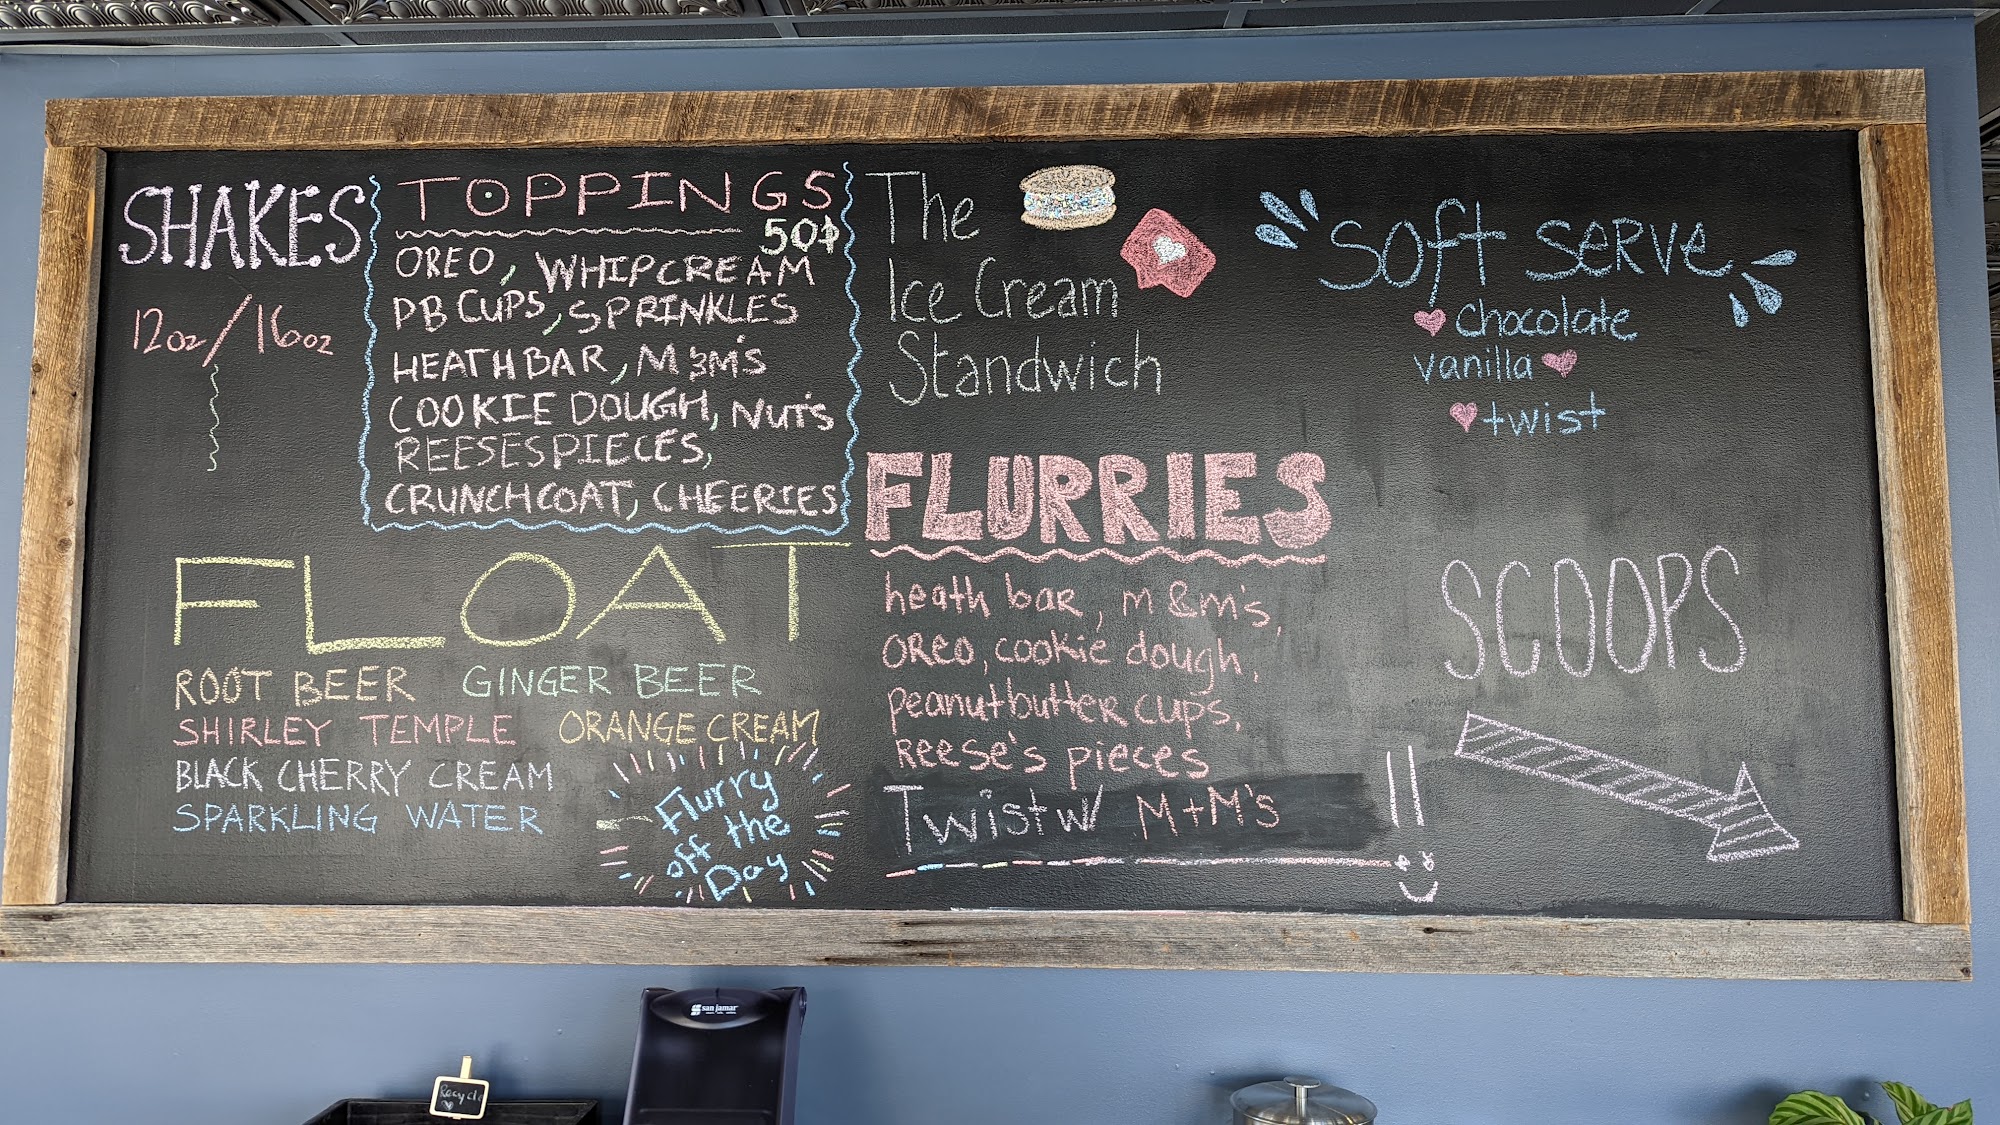 SHAKES
12oz/16oz
TOPPINGS
50¢
OREO, WHIPCREAM
PB CUPS, SPRINKLES
HEATH BAR, M&M'S
COOKIE DOUGH, NUT'S
REESES PIECES,
CRUNCHCOAT, CHEERIES
FLOAT
ROOT BEER GINGER BEER
SHIRLEY TEMPLE ORANGE CREAM
BLACK CHERRY CREAM
SPARKLING WATER
Flurry
off the
Day
The
Ice Cream
Standwich
FLURRIES
heath bar, m &m's,
OReo, cookie dough,
peanutbutter cups,
Reese's pieces
Twist w/ M+M's
soft serve
chocolate
vanilla
twist
SCOOPS
san jamar
Recycle